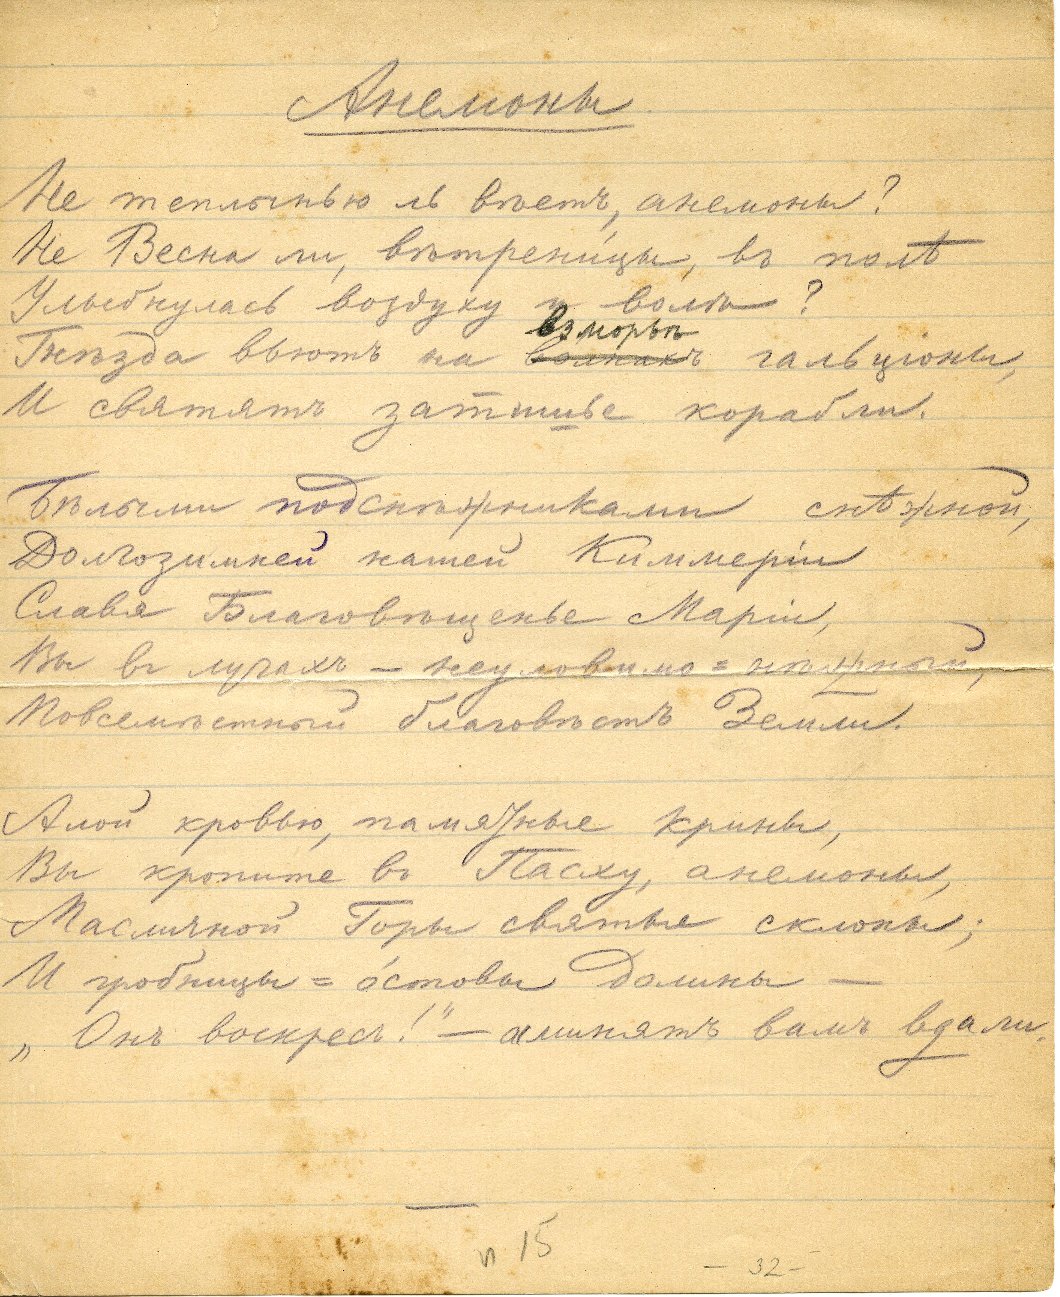 Анемоны
Не теплынью ль вѣетъ, анемоны?
Не Весна ли, вѣтрени́цы, въ полѣ
Улыбнулась воздуху и волѣ?
взморьѣ
Гнѣзда вьютъ на волнахъ гальціоны,
И святятъ затишье корабли.
Бѣлыми подснѣжниками снѣжной,
Долгозимней нашей Киммеріи
Славя Благовѣщенье Маріи,
Вы въ лучахъ – неуловимо=нѣжный,
Повсемѣстный благовѣстъ Земли.
Алой кровью, памятные крины,
Вы кропите въ Пасху, анемоны,
Масличной Горы святые склоны;
И гробницы = о́стовы долины —
„Онъ воскресъ!" — аминятъ вамъ вдали.
п 15
– 32 –